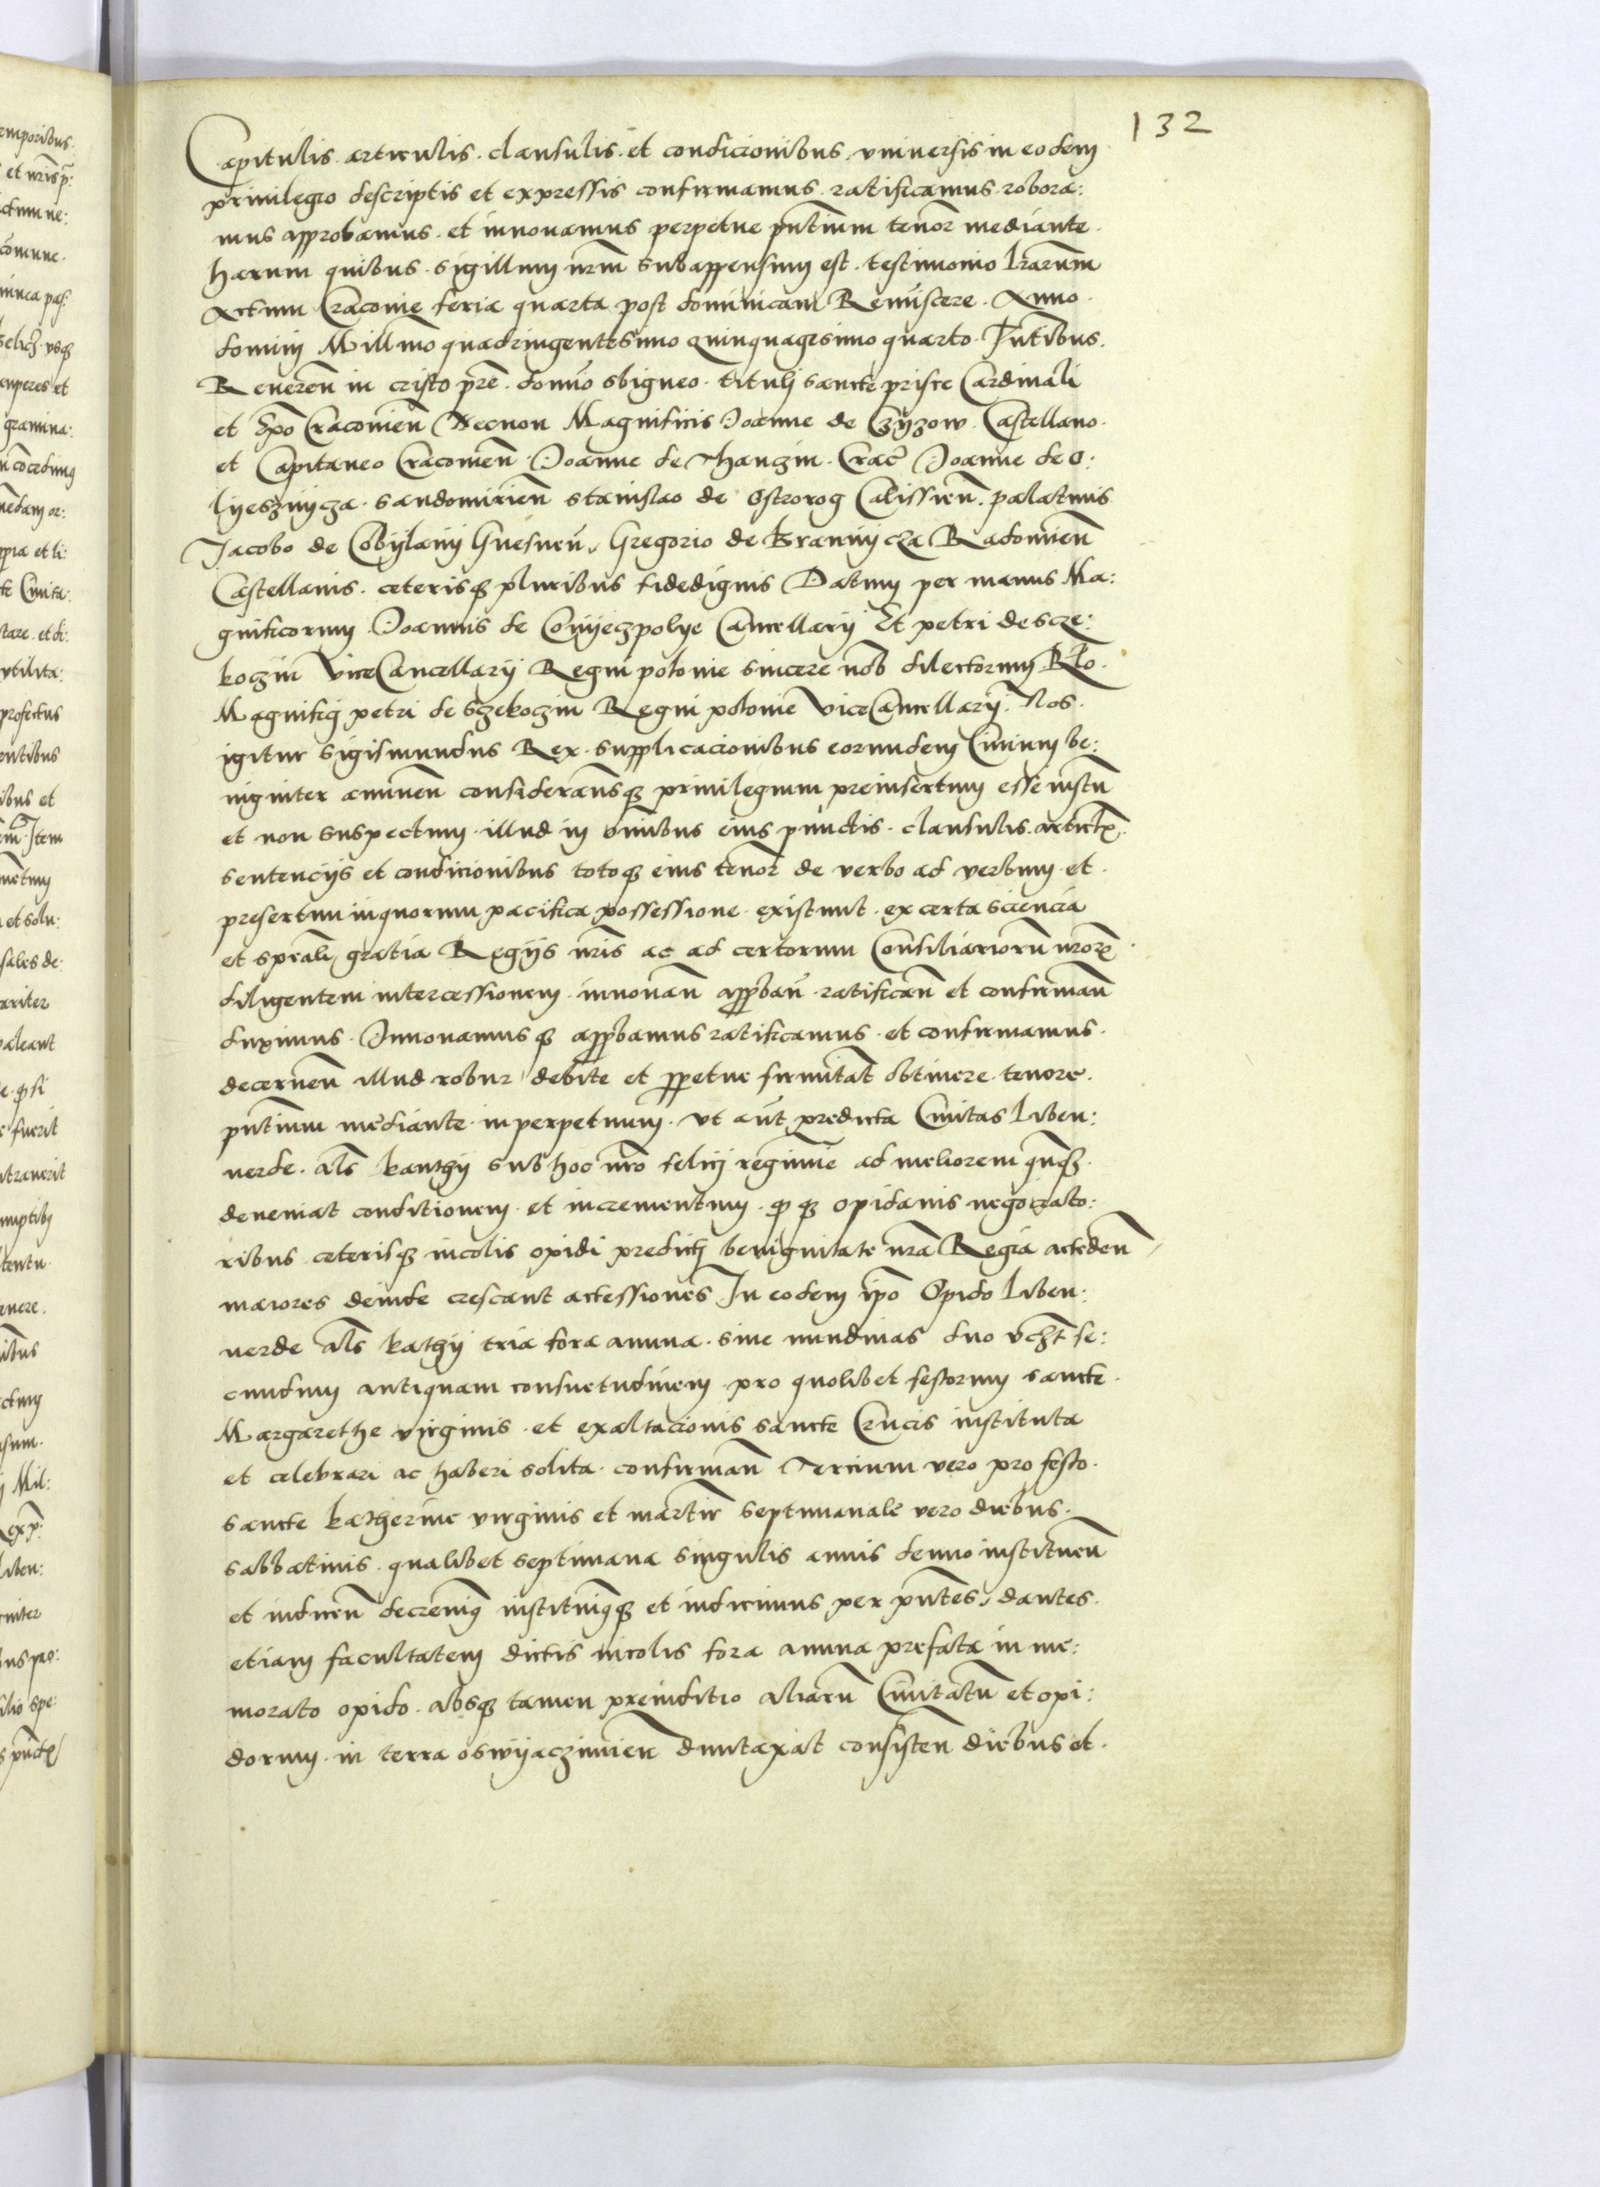 132
Capitulis . articulis . clausulis . et condicionibus . vniuersis in eodem
priuilegio descriptis et expressis confirmamus . ratificamus . robora:
mus approbamus . et innouamus perpetue pñtium tenor̄ mediante .
harum quibus . sigillum nr̄m subappensum est . testimonio lrarum̄
Actum Cracouie feria quarta post dominicam Reminiscere . Anno .
domini Mill̄mo quadringentesimo quinquagesimo quarto . Pñtibus .
Reueren̄ in cristo pr̄e . domīo sbigneo . titulj sancte prisce Cardinali
et Ep̄o Cracouien̄ Necnon Magnificis Joanne de Czyzow . Castellano .
et Capitaneo Cracouien̄ . Joanne de Thanczin . Crac̄ Joanne de O:
lyesznycza . sandomirien̄ stanislao de Ostrorog Calissien̄ . palatinis
Jacobo de Cobylany Gnesnen̄ , Gregorio de Brannycza Radomien̄
Castellanis . ceterisq3 pluribus fidedignis Datum per manus Ma:
gnificorum . Joannis de Conyeczpolye Cancellarij Et petri de scze:
koczin ViceCancellarij Regni polonie sincere nob̄ dilectorum R̄lo .
Magnificj petri de Sczekoczin Regni polonie ViceCancellarij . Nos .
igitur Sigismundus Rex . supplicacionibus eorundem Ciuium be:
nigniter annuen̄ consideran̄sq3 priuilegium preinsertum esse iustū
et non suspectum . illud in om̄ibus eius punctis . clausulis . articl̄
sentencijs et condicionibus totoq3 eius tenor̄ de verbo ad verbum . et .
presertim in quorum pacifica possessione . existunt . ex certa sciencia
et sp̄eali gratia Regijs nr̄is ac ad certorum Consiliariorū nr̄or̄
diligentem intercessionem . innouan̄ app̄roban̄ . ratifican̄ et confirman̄
duximus . Innouamusq3 app̄robamus ratificamus . et confirmamus .
decernen̄ illud robur debite et p̄rpetue firmitat̄ obtinere . tenore .
pñtium mediante . in perpetuum . Vt aūt predicta Ciuitas Liben:
uerde . al̄s kanthy sub hoc nr̄o felicj regimine ad meliorem
deueniat conditionem . et incrementum . opidanis negociato:
ribus ceterisq3 incolis opidi predictj benignitate nr̄a Regia acceden̄
maiores deinde crescant accessiones In eodem ip̄o Opido Liben:
uerde al̄s kathy tria fora annua . siue nundinas duo vc̄zt se:
cundum antiquam consuetudinem . pro quolibet festorum sancte .
Margarethe virginis . et exaltacionis sancte Crucis instituta
et celebrari ac haberi solita . confirman̄ Tercium vero pro festo .
sancte katherine virginis et martir̄ septimanale vero diebus .
sabbatinis . qualibet septimana singulis annis denuo instituen̄
et inducen̄ decreuim9 instituim9q3 et indicimus per pñtes , dantes .
etiam facultatem dictis incolis fora annua prefata in me:
morato opido . absq3 tamen preiuditio aliarū Ciuitatū et opi:
dorum . in terra oswyaczimien̄ duntaxat consisten̄ diebus et .